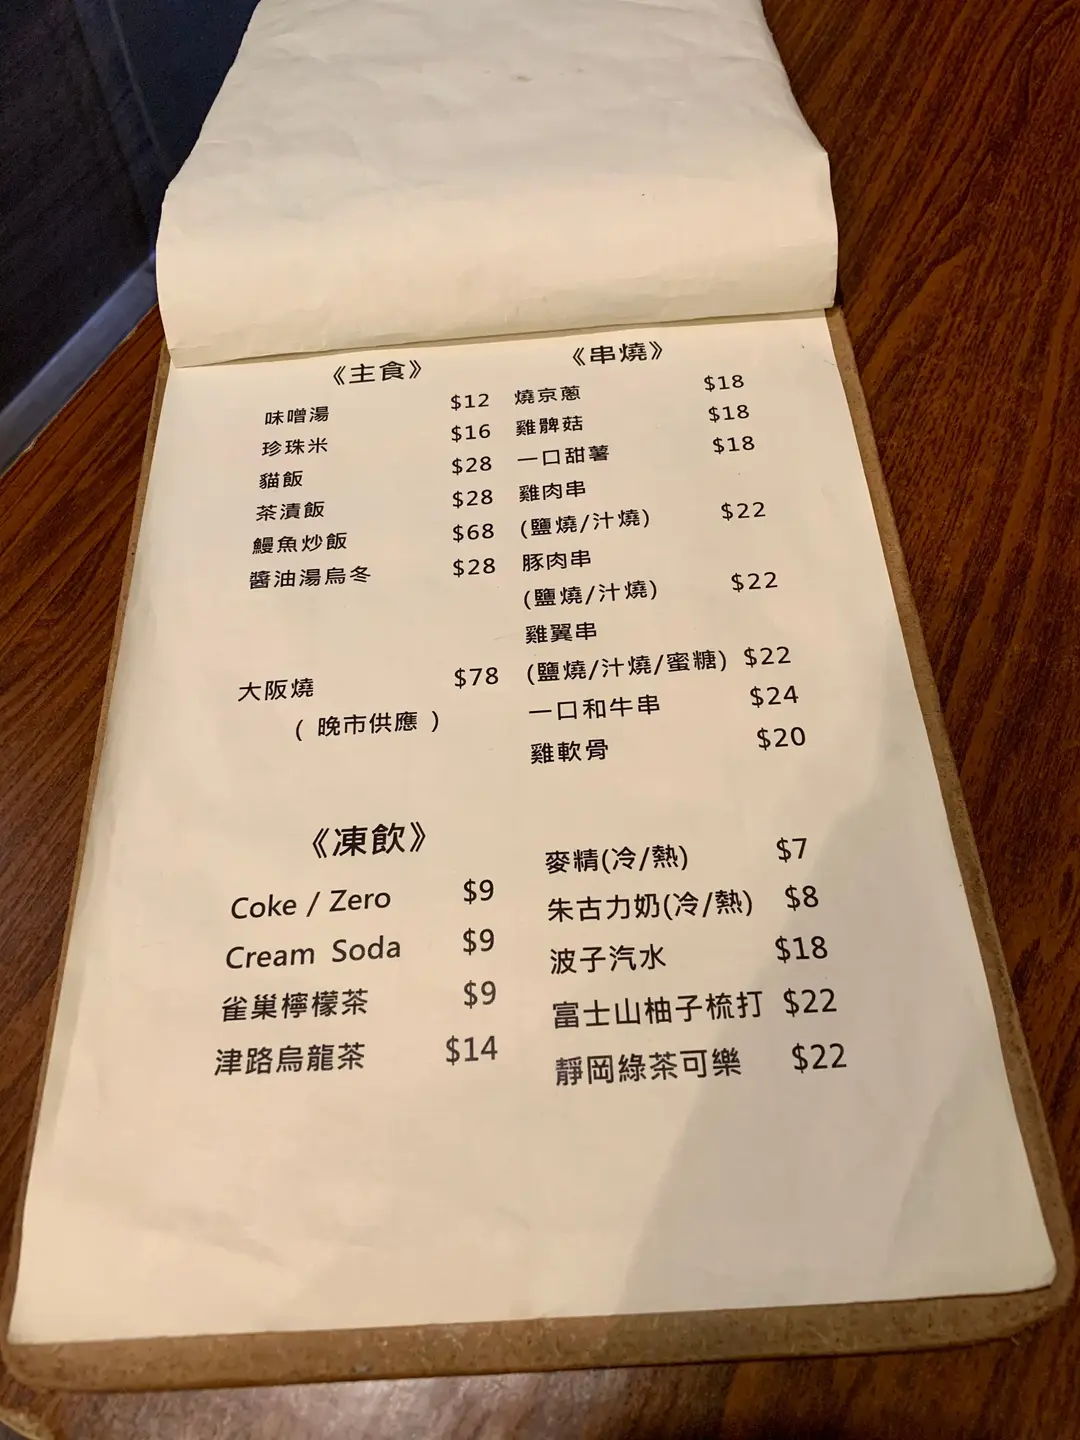 《主食》
味噌湯 $12
珍珠米 $16
貓飯 $28
茶漬飯 $28
鰻魚炒飯 $68
醬油湯烏冬 $28
大阪燒 $78
( 晚市供應 )
《串燒》
燒京蔥 $18
雞髀菇 $18
一口甜薯 $18
雞肉串
(鹽燒/汁燒) $22
豚肉串
(鹽燒/汁燒) $22
雞翼串
(鹽燒/汁燒/蜜糖) $22
一口和牛串 $24
雞軟骨 $20
《凍飲》
Coke / Zero $9
Cream Soda $9
雀巢檸檬茶 $9
津路烏龍茶 $14
麥精(冷/熱) $7
朱古力奶(冷/熱) $8
波子汽水 $18
富士山柚子梳打 $22
靜岡綠茶可樂 $22